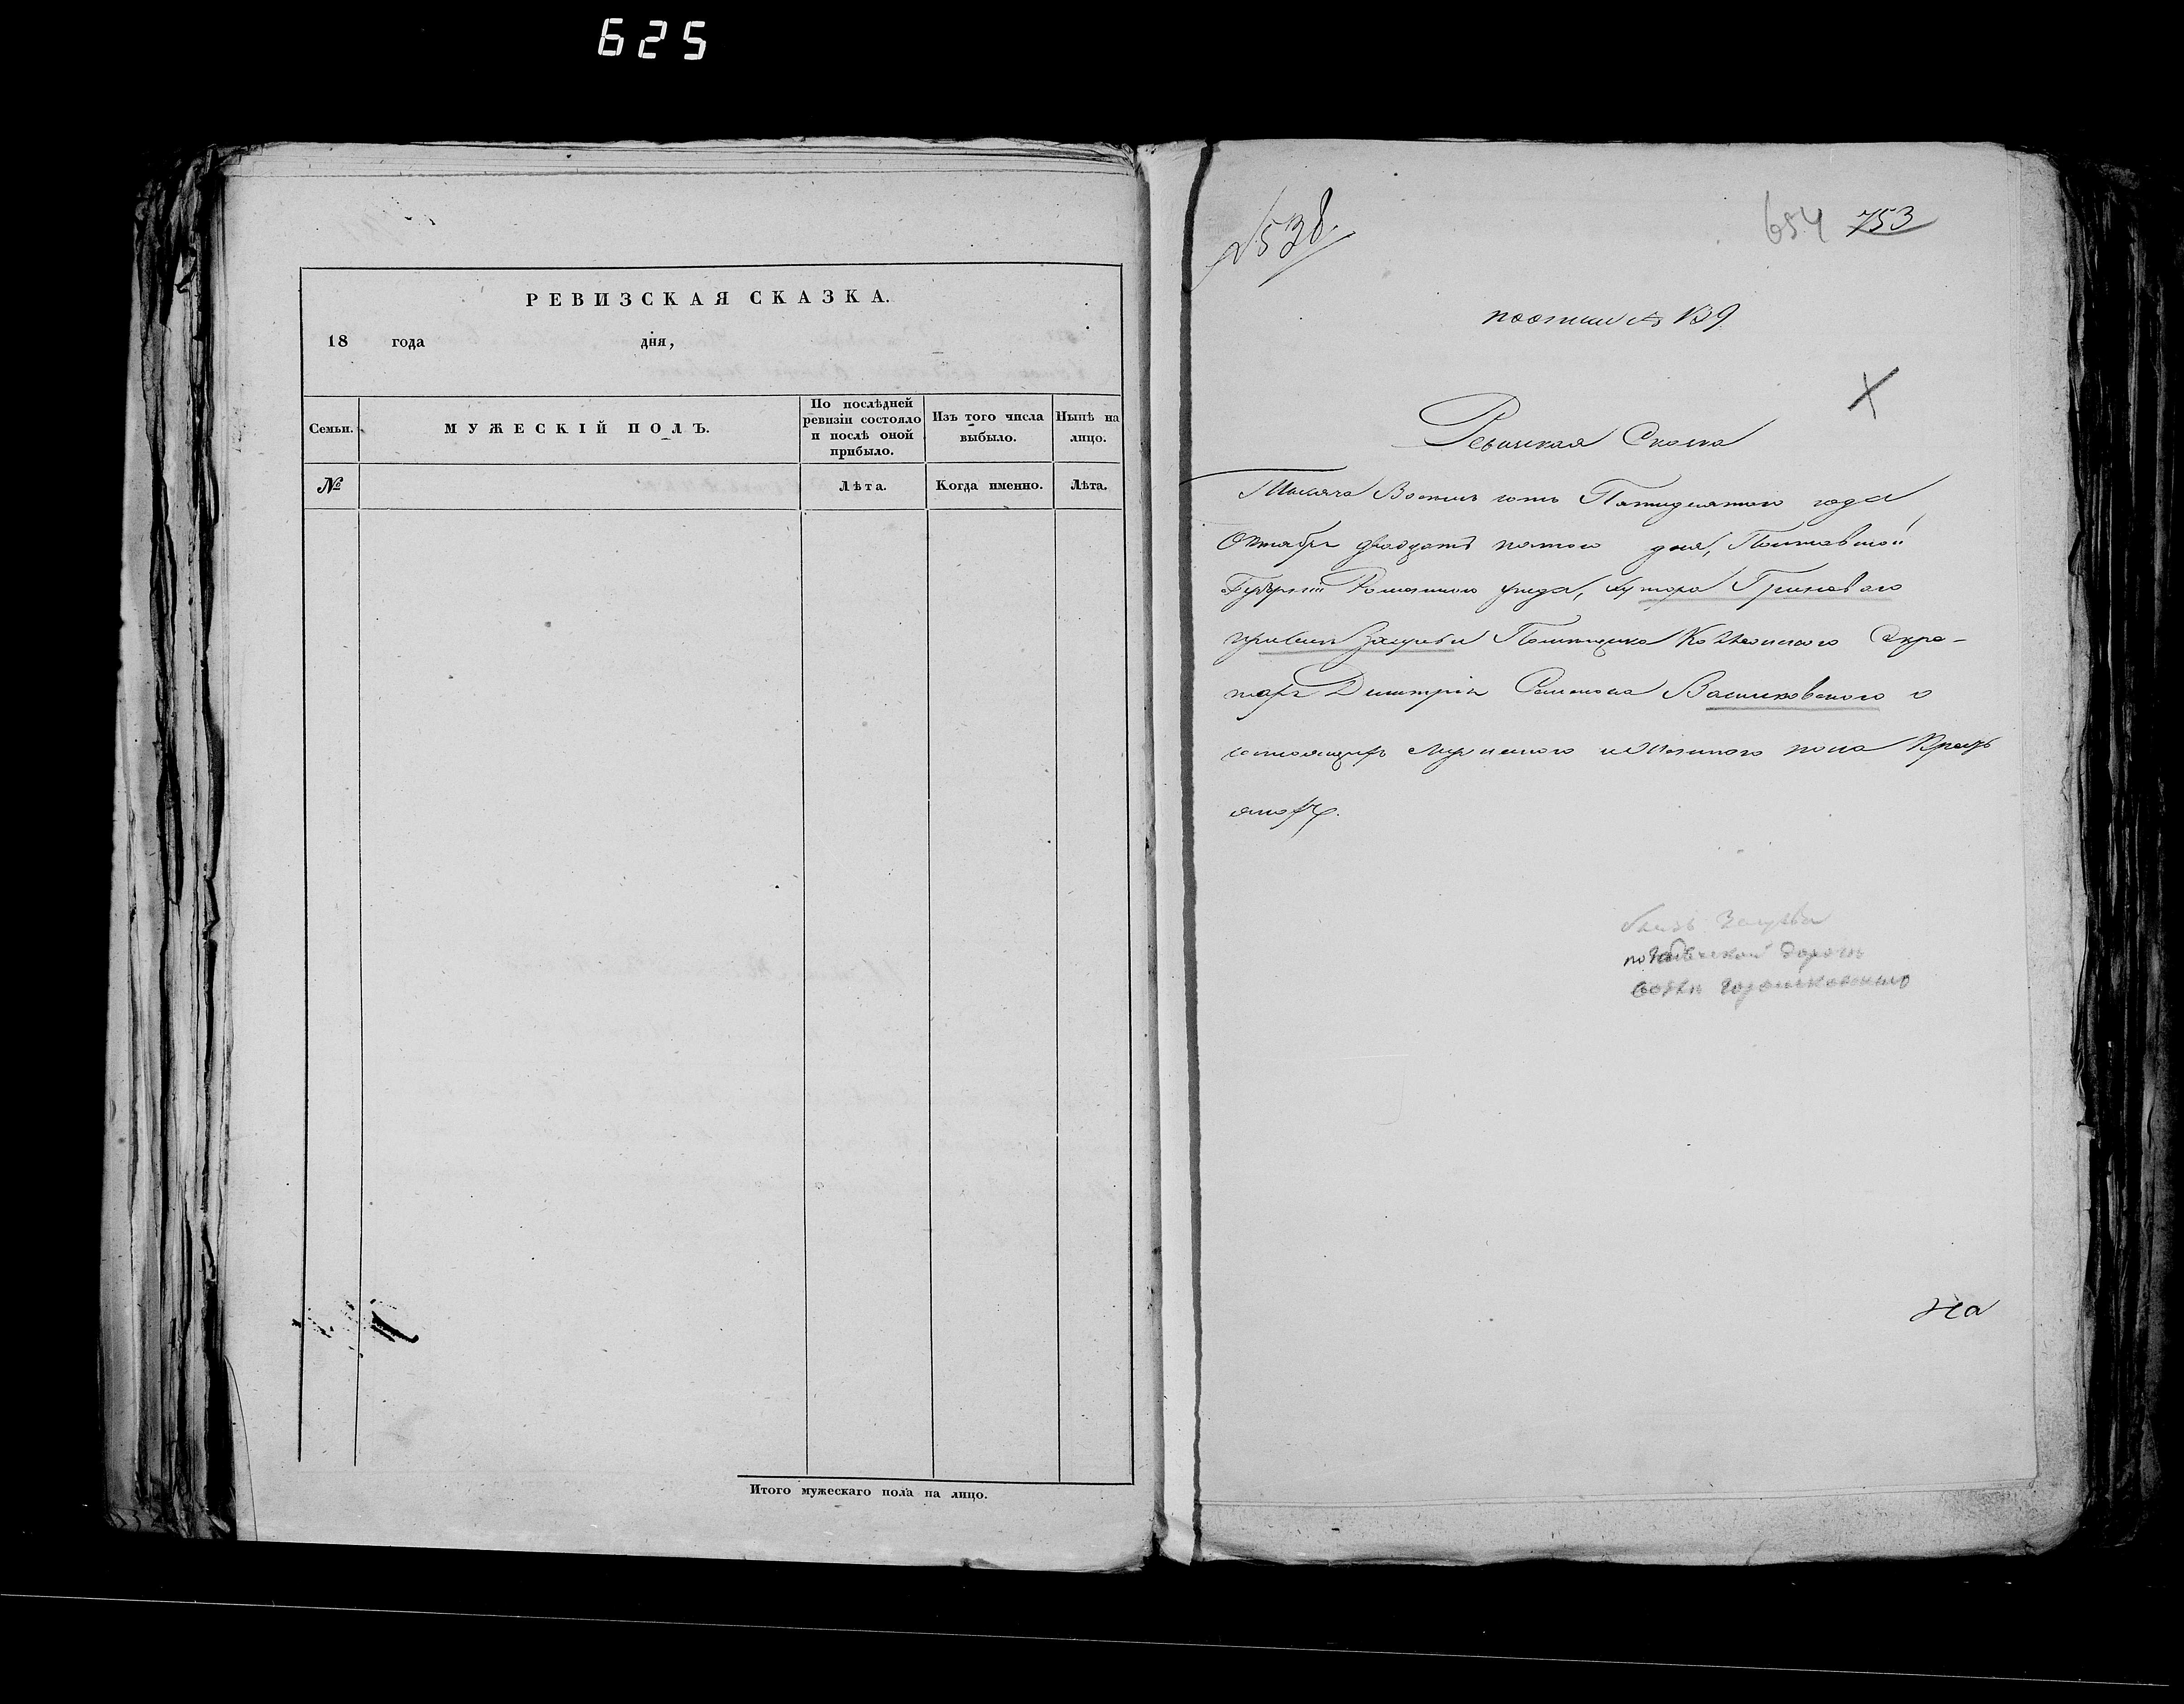 625
РЕВИЗСКАЯ СКАЗКА.
18 года дня,
Семьи.
МУЖЕСКІЙ ПОЛЪ.
По послѣдней ревизіи состояло и послѣ оной прибыло.
Изъ того числа выбыло.
Нынѣ на лицо.
№
Лѣта.
Когда именно.
Лѣта.
Итого мужескаго пола на лицо.
№538.
654 753
139
Ревизская Сказка
Тысяча Восемь сотъ Пятидесятого года
Октября двадцать пятого дня, Полтавской
Губерніи Роменского уезда, хутора
Помещика Колежского Секре-
таря Димитрія Семенова Васильковского о
состоящихъ мужеского и женского пола Крестъ
янахъ.
близь
по дороги
На